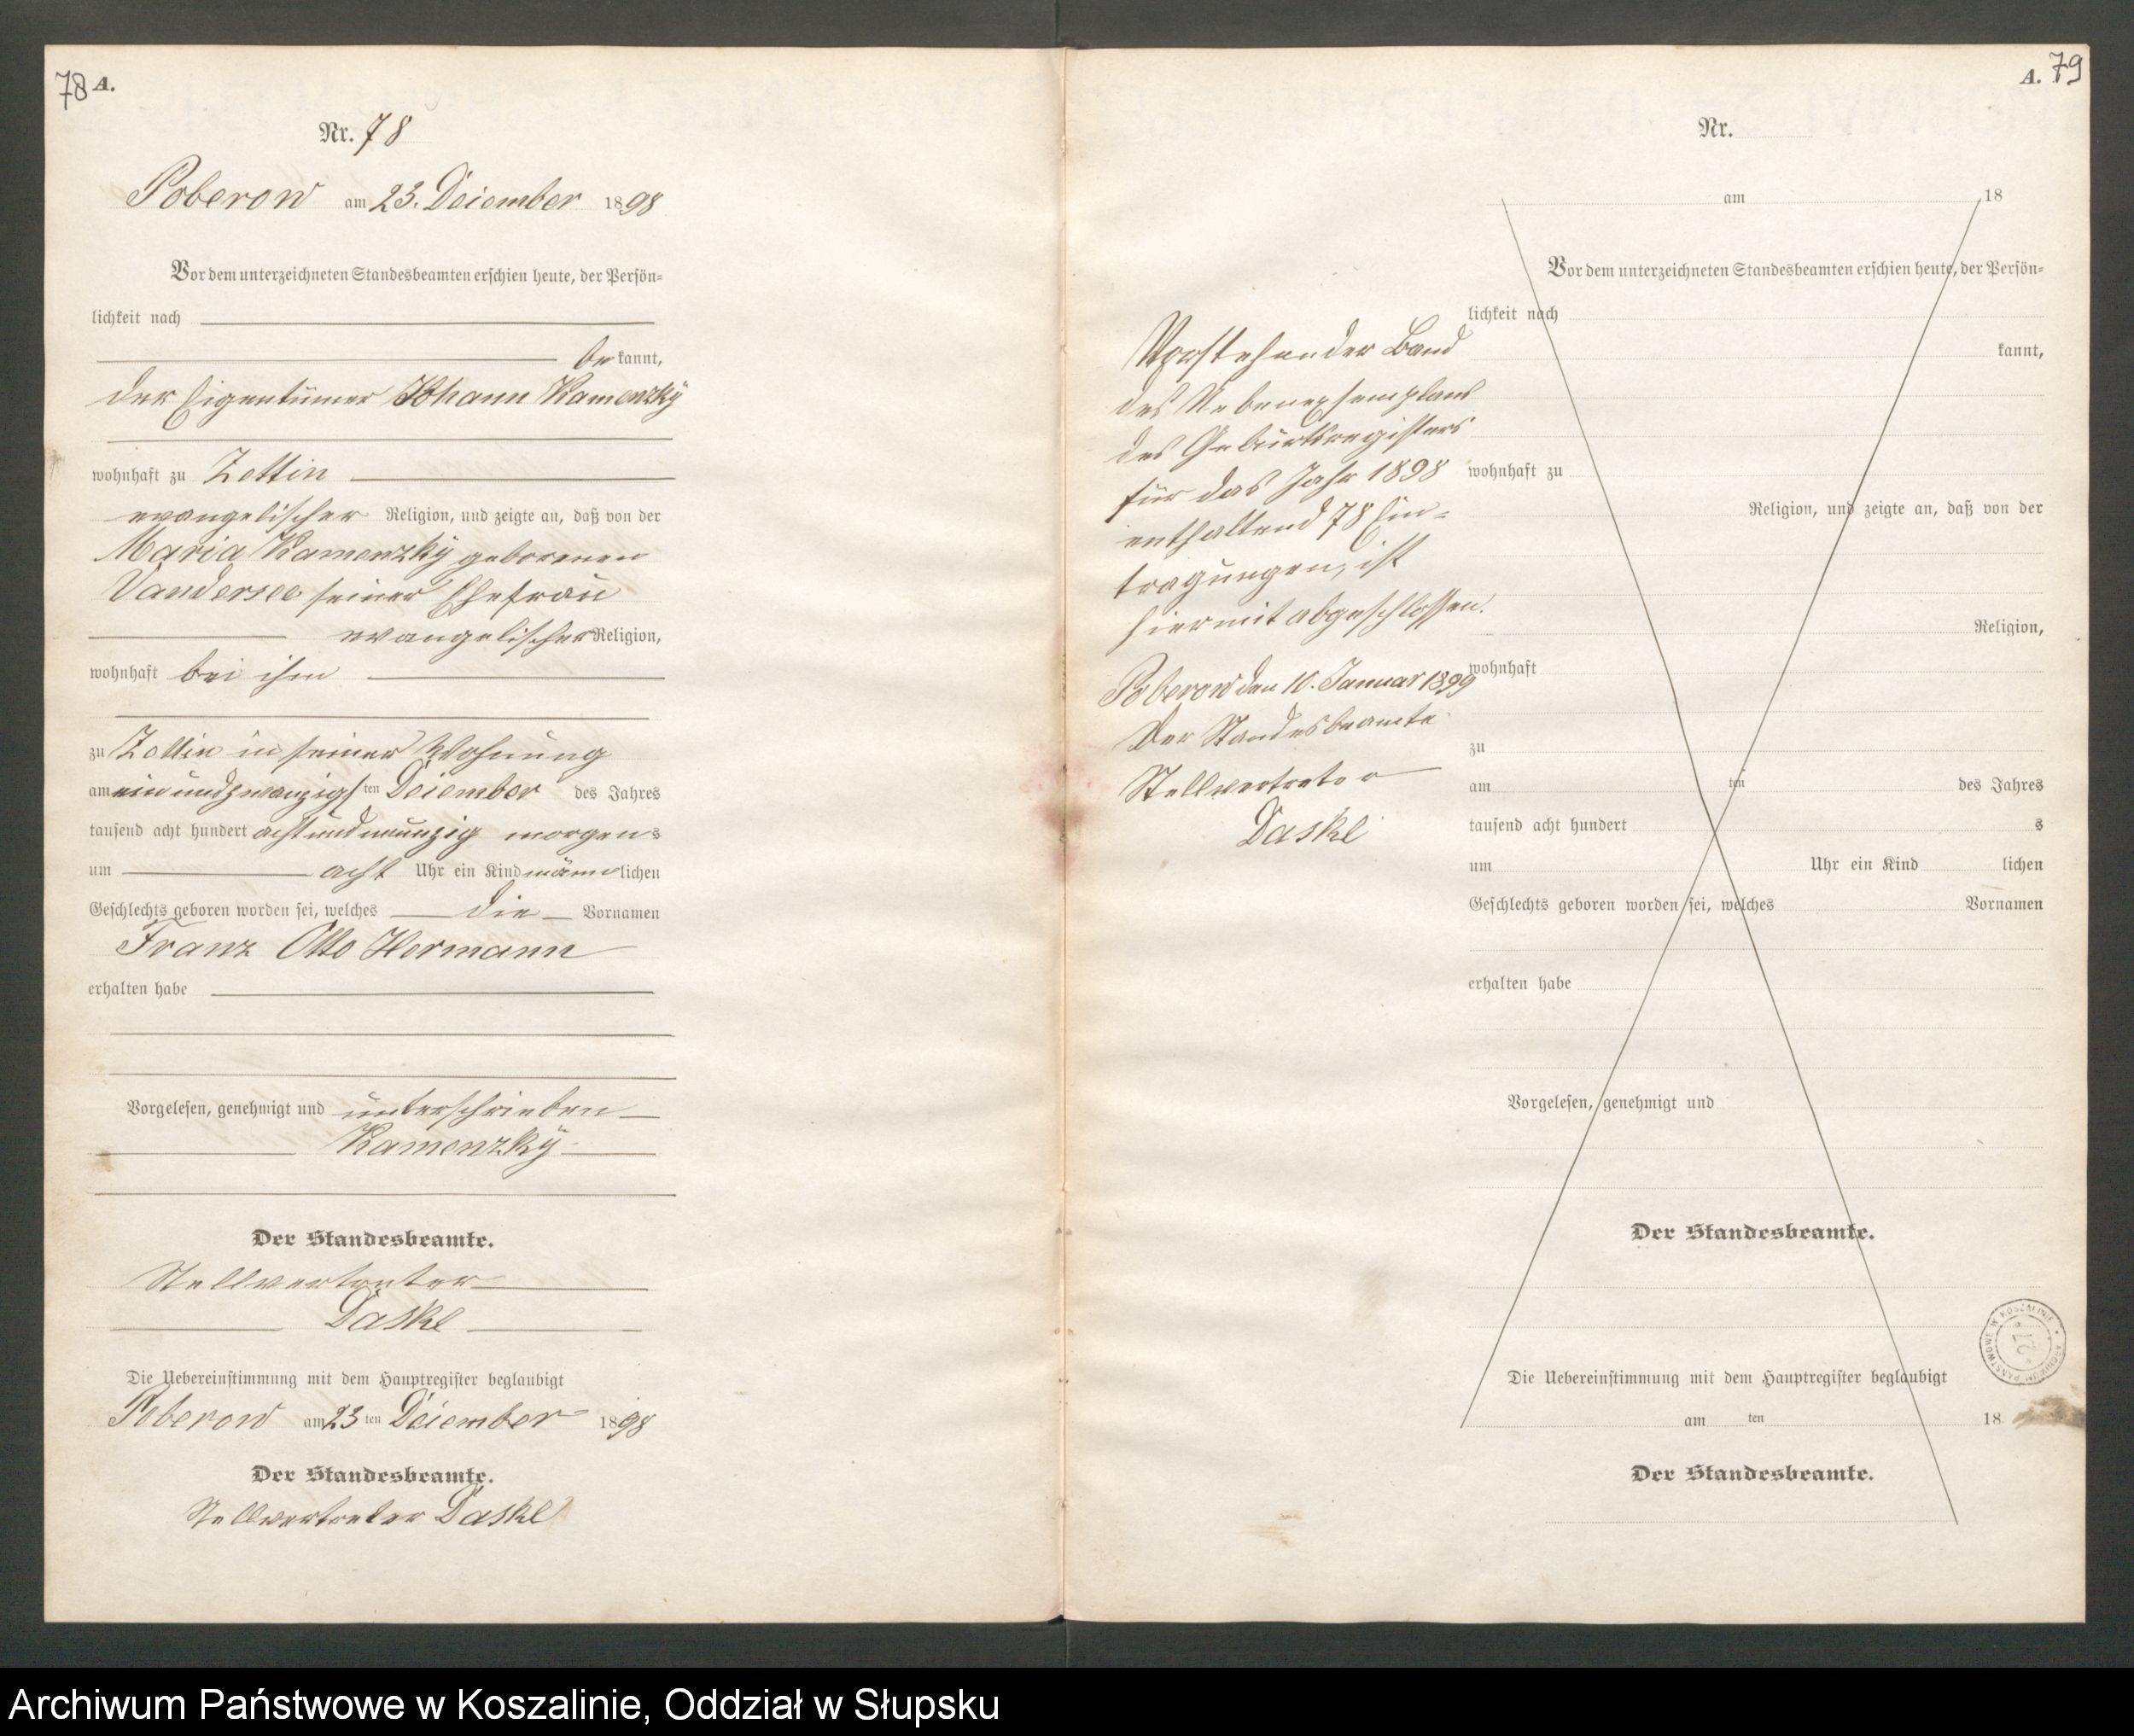 78 A.
Nr. 78
Poberow am 23. Dezember 1898
Vor dem unterzeichneten Standesbeamten erschien heute, der Persön=
lichkeit nach
be kannt,
der Eigentümer Johann Kamenzky
wohnhaft zu Zettin
evangelischer Religion, und zeigte an, daß von der
Maria Kamenzky geborenen
Vandersee seiner Ehefrau
evangelischer Religion,
wohnhaft bei ihm
zu Zettin in seiner Wohnung
am einundzwanzigs ten Dezember des Jahres
tausend acht hundert achtundneunzig morgens
um acht Uhr ein Kind männlichen
Geschlechts geboren worden sei, welches die Vornamen
Franz Otto Hermann
erhalten habe
Vorgelesen, genehmigt und unterschrieben
Kamenzky
Der Standesbeamte.
Stellvertreter
Daske
Die Uebereinstimmung mit dem Hauptregister beglaubigt
Poberow am 23 ten Dezember 1898
Der Standesbeamte.
Stellvertreter Daske
A. 79
Nr.
am 18
Vor dem unterzeichneten Standesbeamten erschien heute, der Persön=
lichkeit nach
kannt,
wohnhaft zu
Religion, und zeigte an, daß von der
Religion,
wohnhaft
zu
am ten des Jahres
tausend acht hundert s
um Uhr ein Kind lichen
Geschlechts geboren worden sei, welches Vornamen
erhalten habe
Vorgelesen, genehmigt und
Der Standesbeamte.
Die Uebereinstimmung mit dem Hauptregister beglaubigt
am ten 18
Der Standesbeamte.
Vorstehender Band
des Nebenexemplars
des Geburtsregisters
für das Jahr 1898
enthaltend 78 Ein=
tragungen, ist
hiermit abgeschlossen.
Poberow den 10. Januar 1899
Der Standesbeamte
Stellvertreter
Daske
ARCHIWUM PAŃSTWOWE W KOSZALINIE
27
Archiwum Państwowe w Koszalinie, Oddział w Słupsku